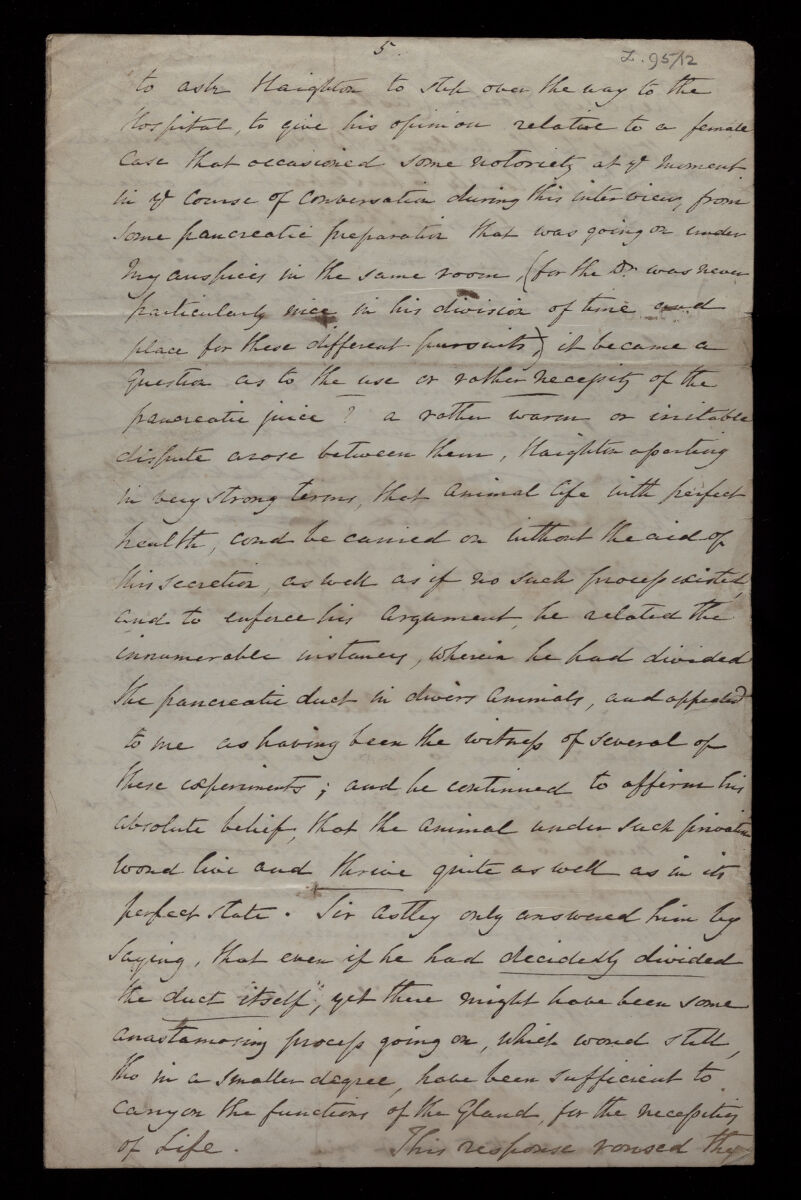 5.
L. 95/12
to ask Haighton to step over the way to the
Hospital, to give his opinion relative to a female
Case that occasioned some notoriety at ye moment.
in ye course of conversation during this interview, from
some pancreatic preparation that was going on under
my auspices in the same room, (for the Dr. was never
particularly nice in his division of time and
place for these different pursuits,) it became a
question as to the use or rather necessity of the
pancreatic juice? a rather warm or irritable
dispute arose between them, Haighton asserting
in very strong terms, that animal life with perfect
health, cond be carried on without the aid of
this secretion, as well as if no such process existed,
and to enforce his argument, he related the
innumerable instances, wherein he had divided
the pancreatic duct in divers animals, and appealed
to me as having been the witness of several of
these experiments; and he continued to affirm his
absolute belief, that the animal under such privation
wond live and thrive quite as well as in its
perfect state. Sir Astley only answered him by
saying, that even if he had decidedly divided
the duct itself", yet there might have been some
anastamosing process going on, which wond still,
tho in a smaller degree, have been sufficient to
carry on the functions of the Gland, for the necessities
of Life. This response roused the